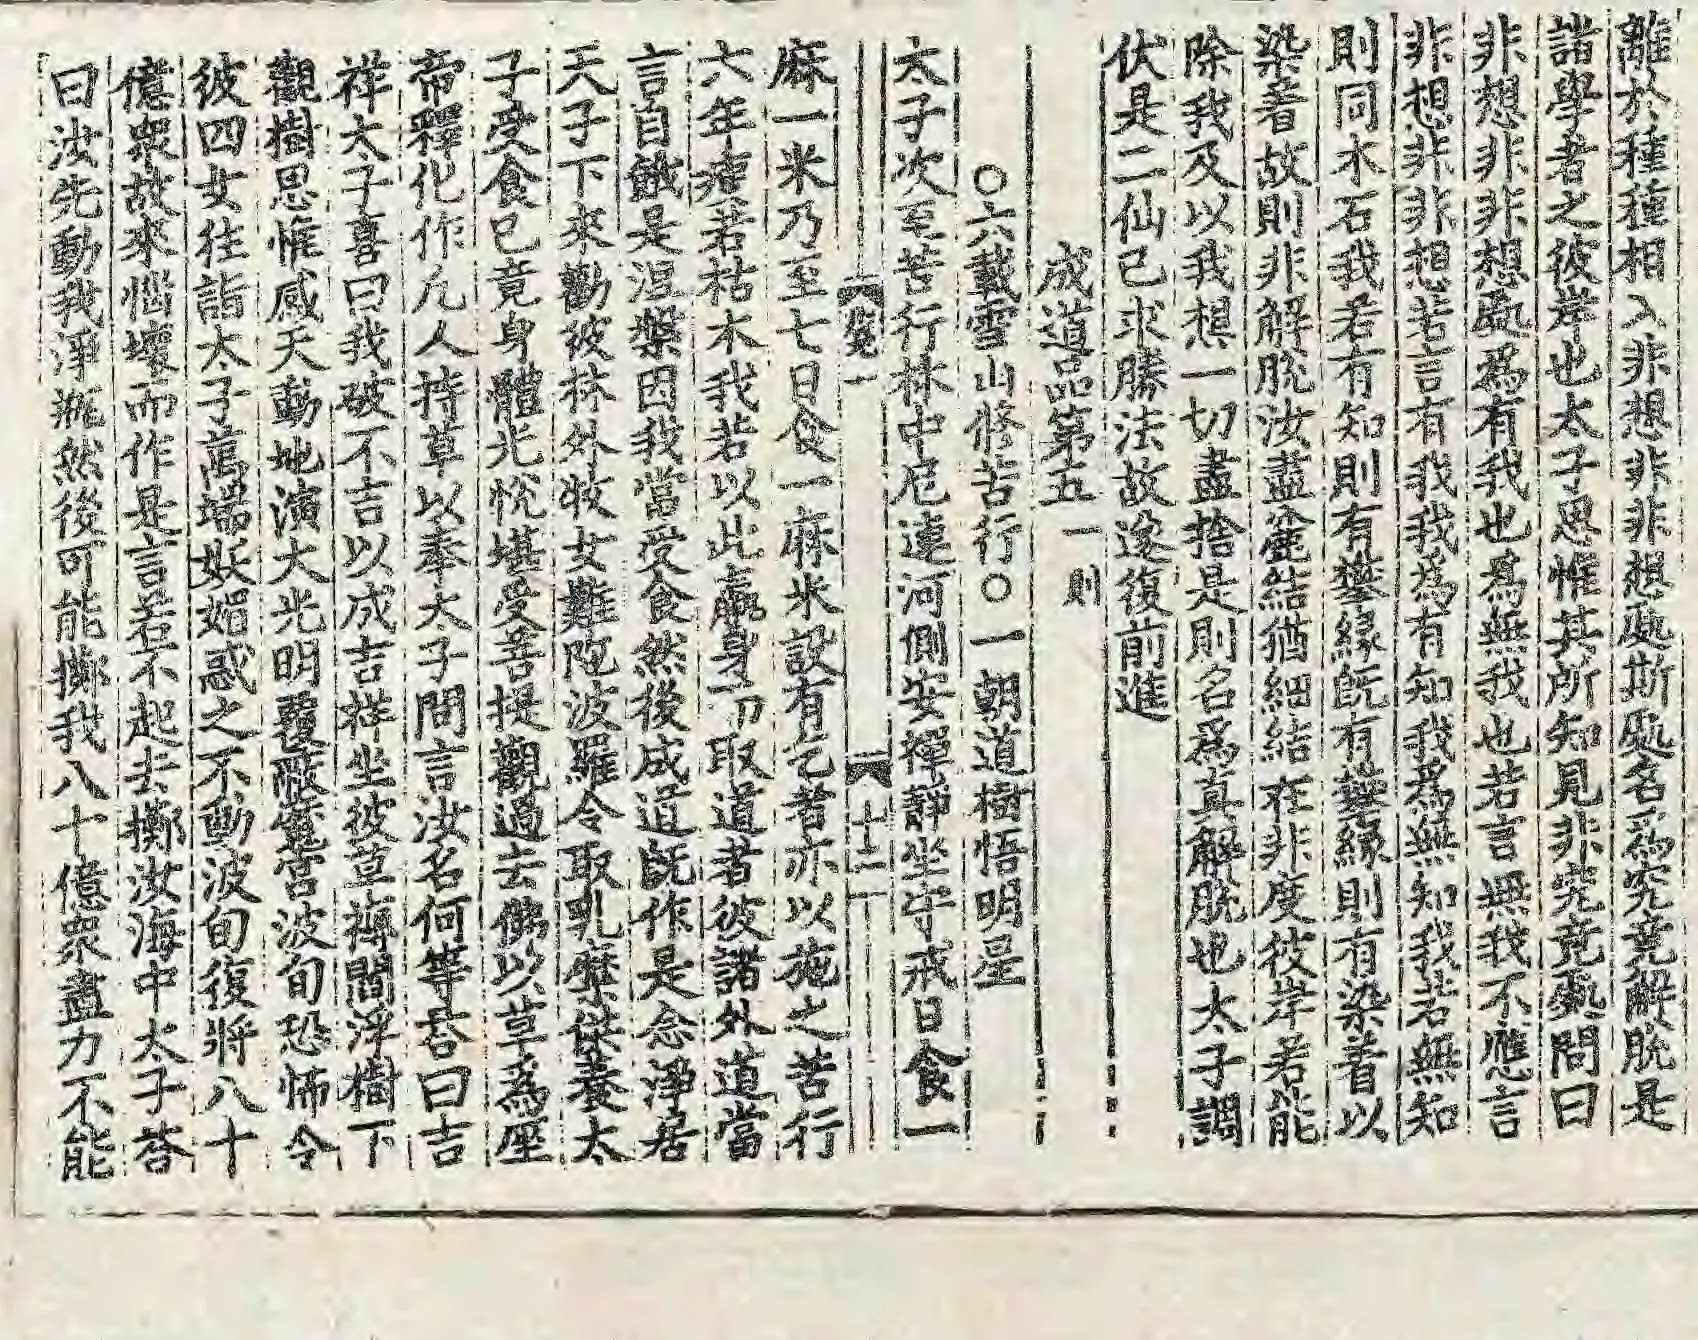 離於種種相入非想非非想處斯處名爲究竟解脫是
諸學者之彼岸也太子思惟其所知見非究竟處問曰
非想非非想處爲有我也爲無我也若言無我不應言
非想非非想若言有我我爲有知我爲無知我若無知
則同木石我若有知則有攀緣旣有攀緣則有染著以
染著故則非解脫汝盡麁結猶細結在非度彼岸若能
除我及以我想一切盡捨是則名爲真解脫也太子調
伏是二仙已求勝法故遂復前進
成道品第五 一則
○六載雪山修苦行○一朝道樹悟明星
太子次至苦行林中尼連河側安禪靜坐守戒日食一
卷一 十二
麻一米乃至七日食一麻米設有乞者亦以施之苦行
六年瘦若枯木我若以此羸身而取道者彼諸外道當
言自餓是涅槃因我當受食然後成道旣作是念淨居
天子下來勸彼林外牧女難陁波羅令取乳糜供養太
子受食已竟身體光悅堪受菩提觀過去佛以草爲座
帝釋化作凡人持草以奉太子問言汝名何等荅曰吉
祥太子喜曰我破不言以成吉祥坐彼草褥閻浮樹下
觀樹思惟感天動地演大光明覆蔽魔宮波旬恐怖令
彼四女往詣太子萬端妖媚惑之不動波旬復將八十
億衆故來惱壞而作是言若不起去擲汝海中太子荅
曰汝先動我淨瓶然後可能擲我八十億衆盡力不能